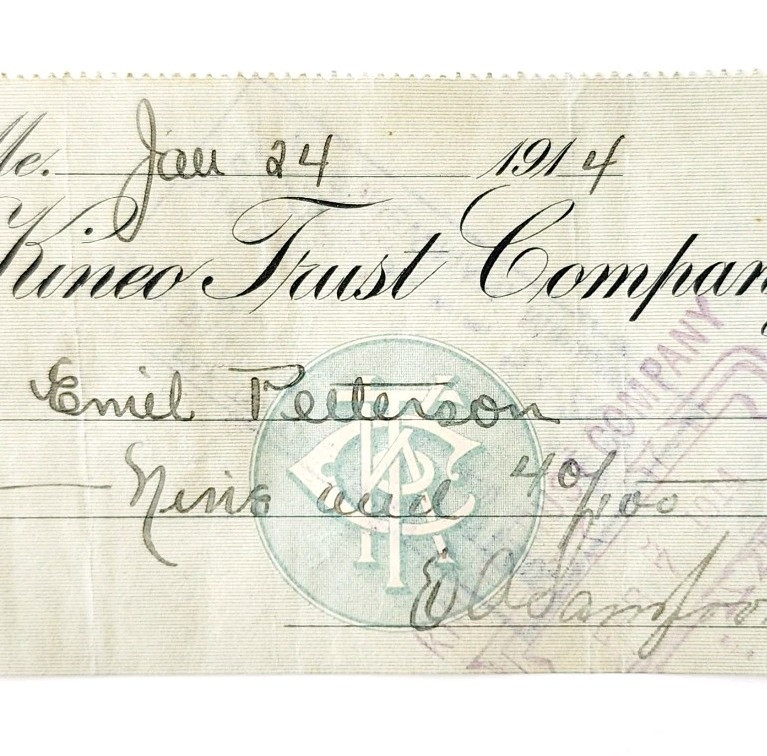 Me. Jan 24 1914
Kineo Trust Company
Emil Petterson
Nine and 40/100
COMPANY